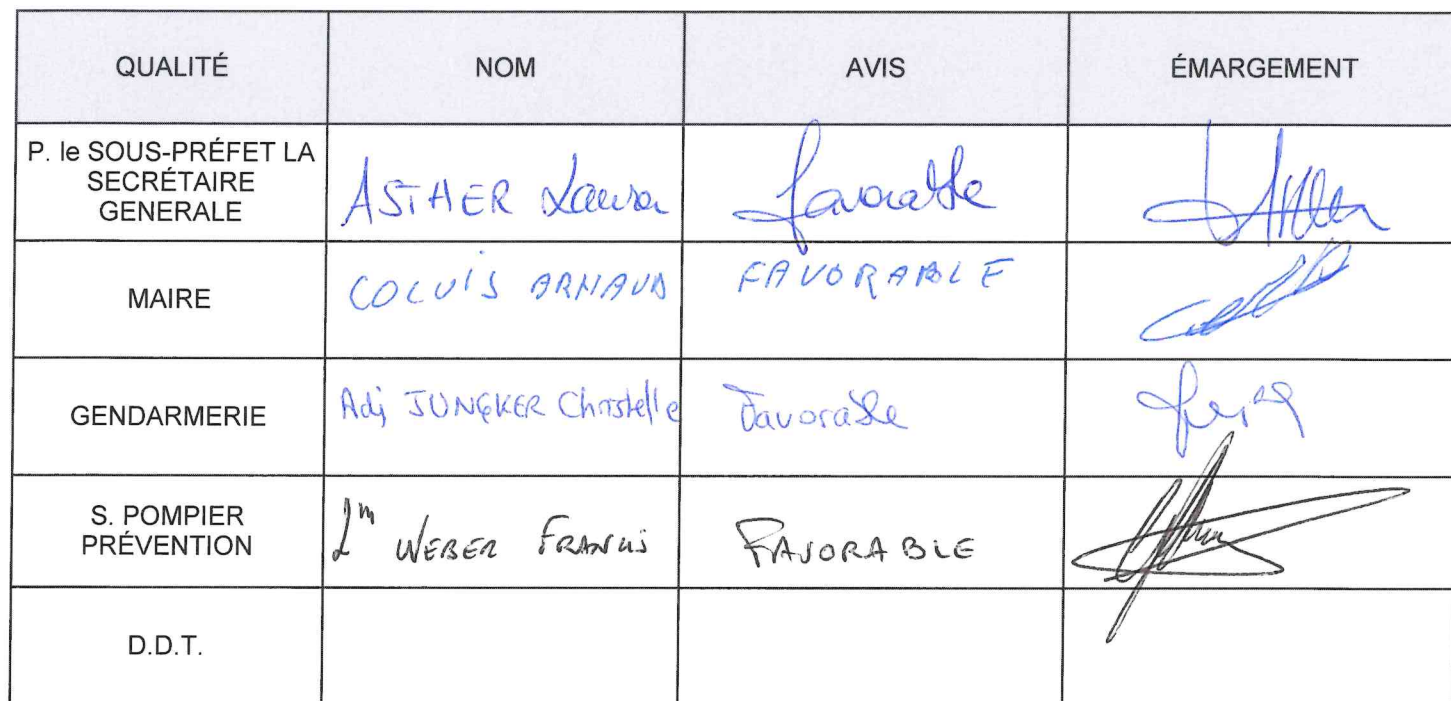 QUALITÉ NOM AVIS ÉMARGEMENT
P. le SOUS-PRÉFET LA
SECRÉTAIRE
GENERALE
ASTHER Laura favorable
MAIRE COLVIS ARNAUD FAVORABLE
GENDARMERIE Adj JUNGKER Christelle Favorable
S. POMPIER
PRÉVENTION
WEBER FRANCIS FAVORABLE
D.D.T.